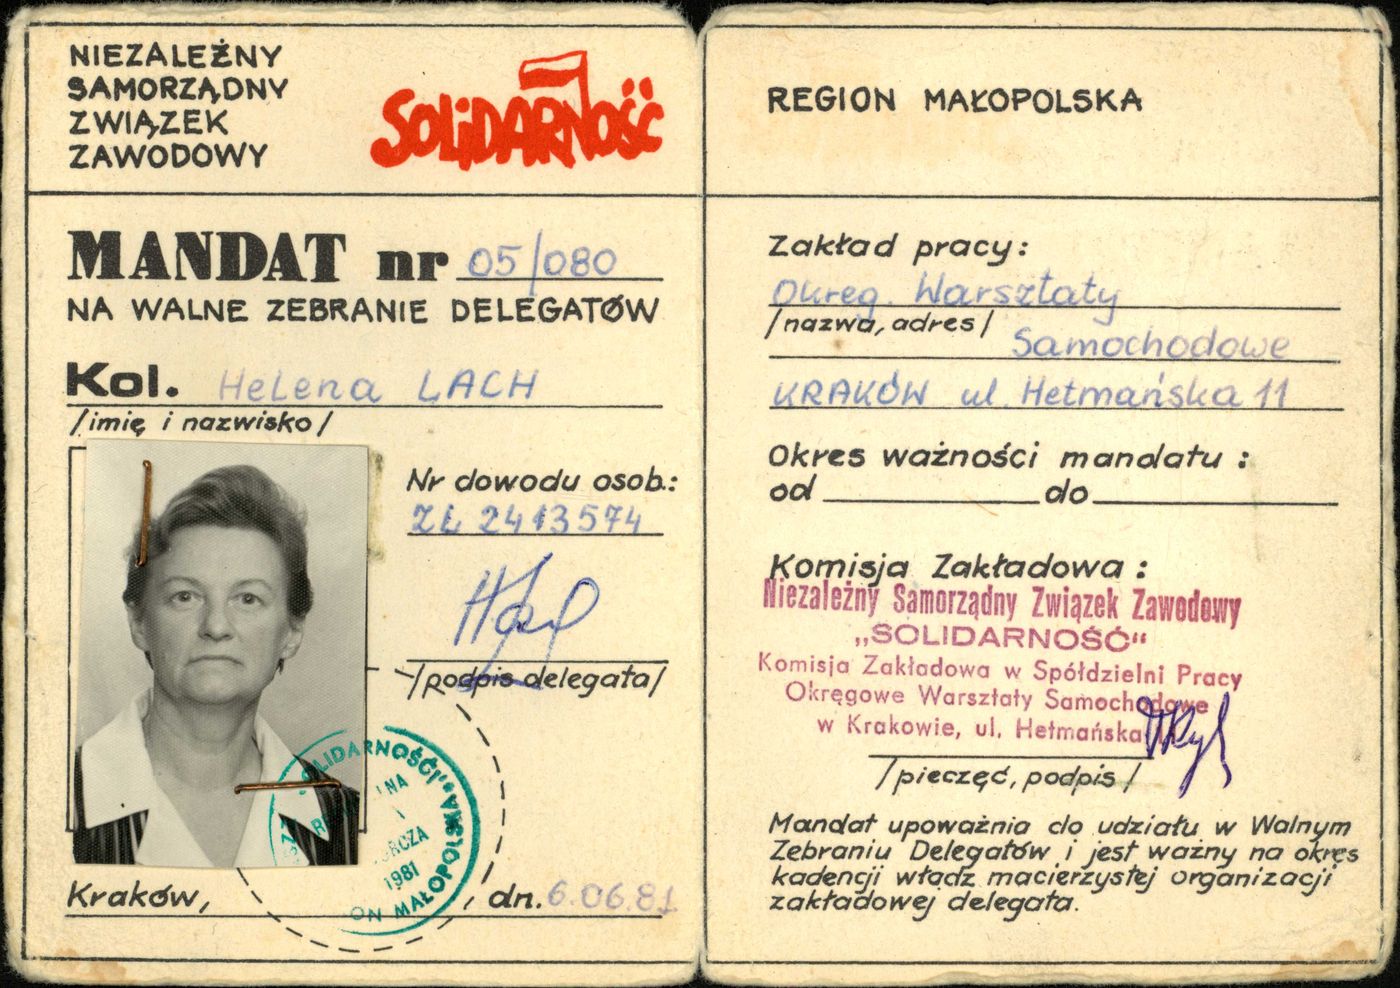 NIEZALEŻNY
SAMORZĄDNY
ZWIĄZEK
ZAWODOWY
SOLIDARNOŚĆ
MANDAT nr 05/080
NA WALNE ZEBRANIE DELEGATÓW
Kol. Helena LACH
/imię i nazwisko/
Nr dowodu osob.:
ZŁ 2413574
/podpis delegata/
SOLIDARNOŚCI"
1981
MAŁOPOLSKA
Kraków, dn. 6.06.81
REGION MAŁOPOLSKA
Zakład pracy:
Okręg. Warsztaty
/nazwa, adres/
Samochodowe
KRAKÓW ul. Hetmańska 11
Okres ważności mandatu :
od do
Komisja Zakładowa :
Niezależny Samorządny Związek Zawodowy
„SOLIDARNOŚĆ"
Komisja Zakładowa w Spółdzielni Pracy
Okręgowe Warsztaty Samochodowe
w Krakowie, ul. Hetmańska
/pieczęć, podpis/
Mandat upoważnia do udziału w Walnym
Zebraniu Delegatów i jest ważny na okres
kadencji władz macierzystej organizacji
zakładowej delegata.